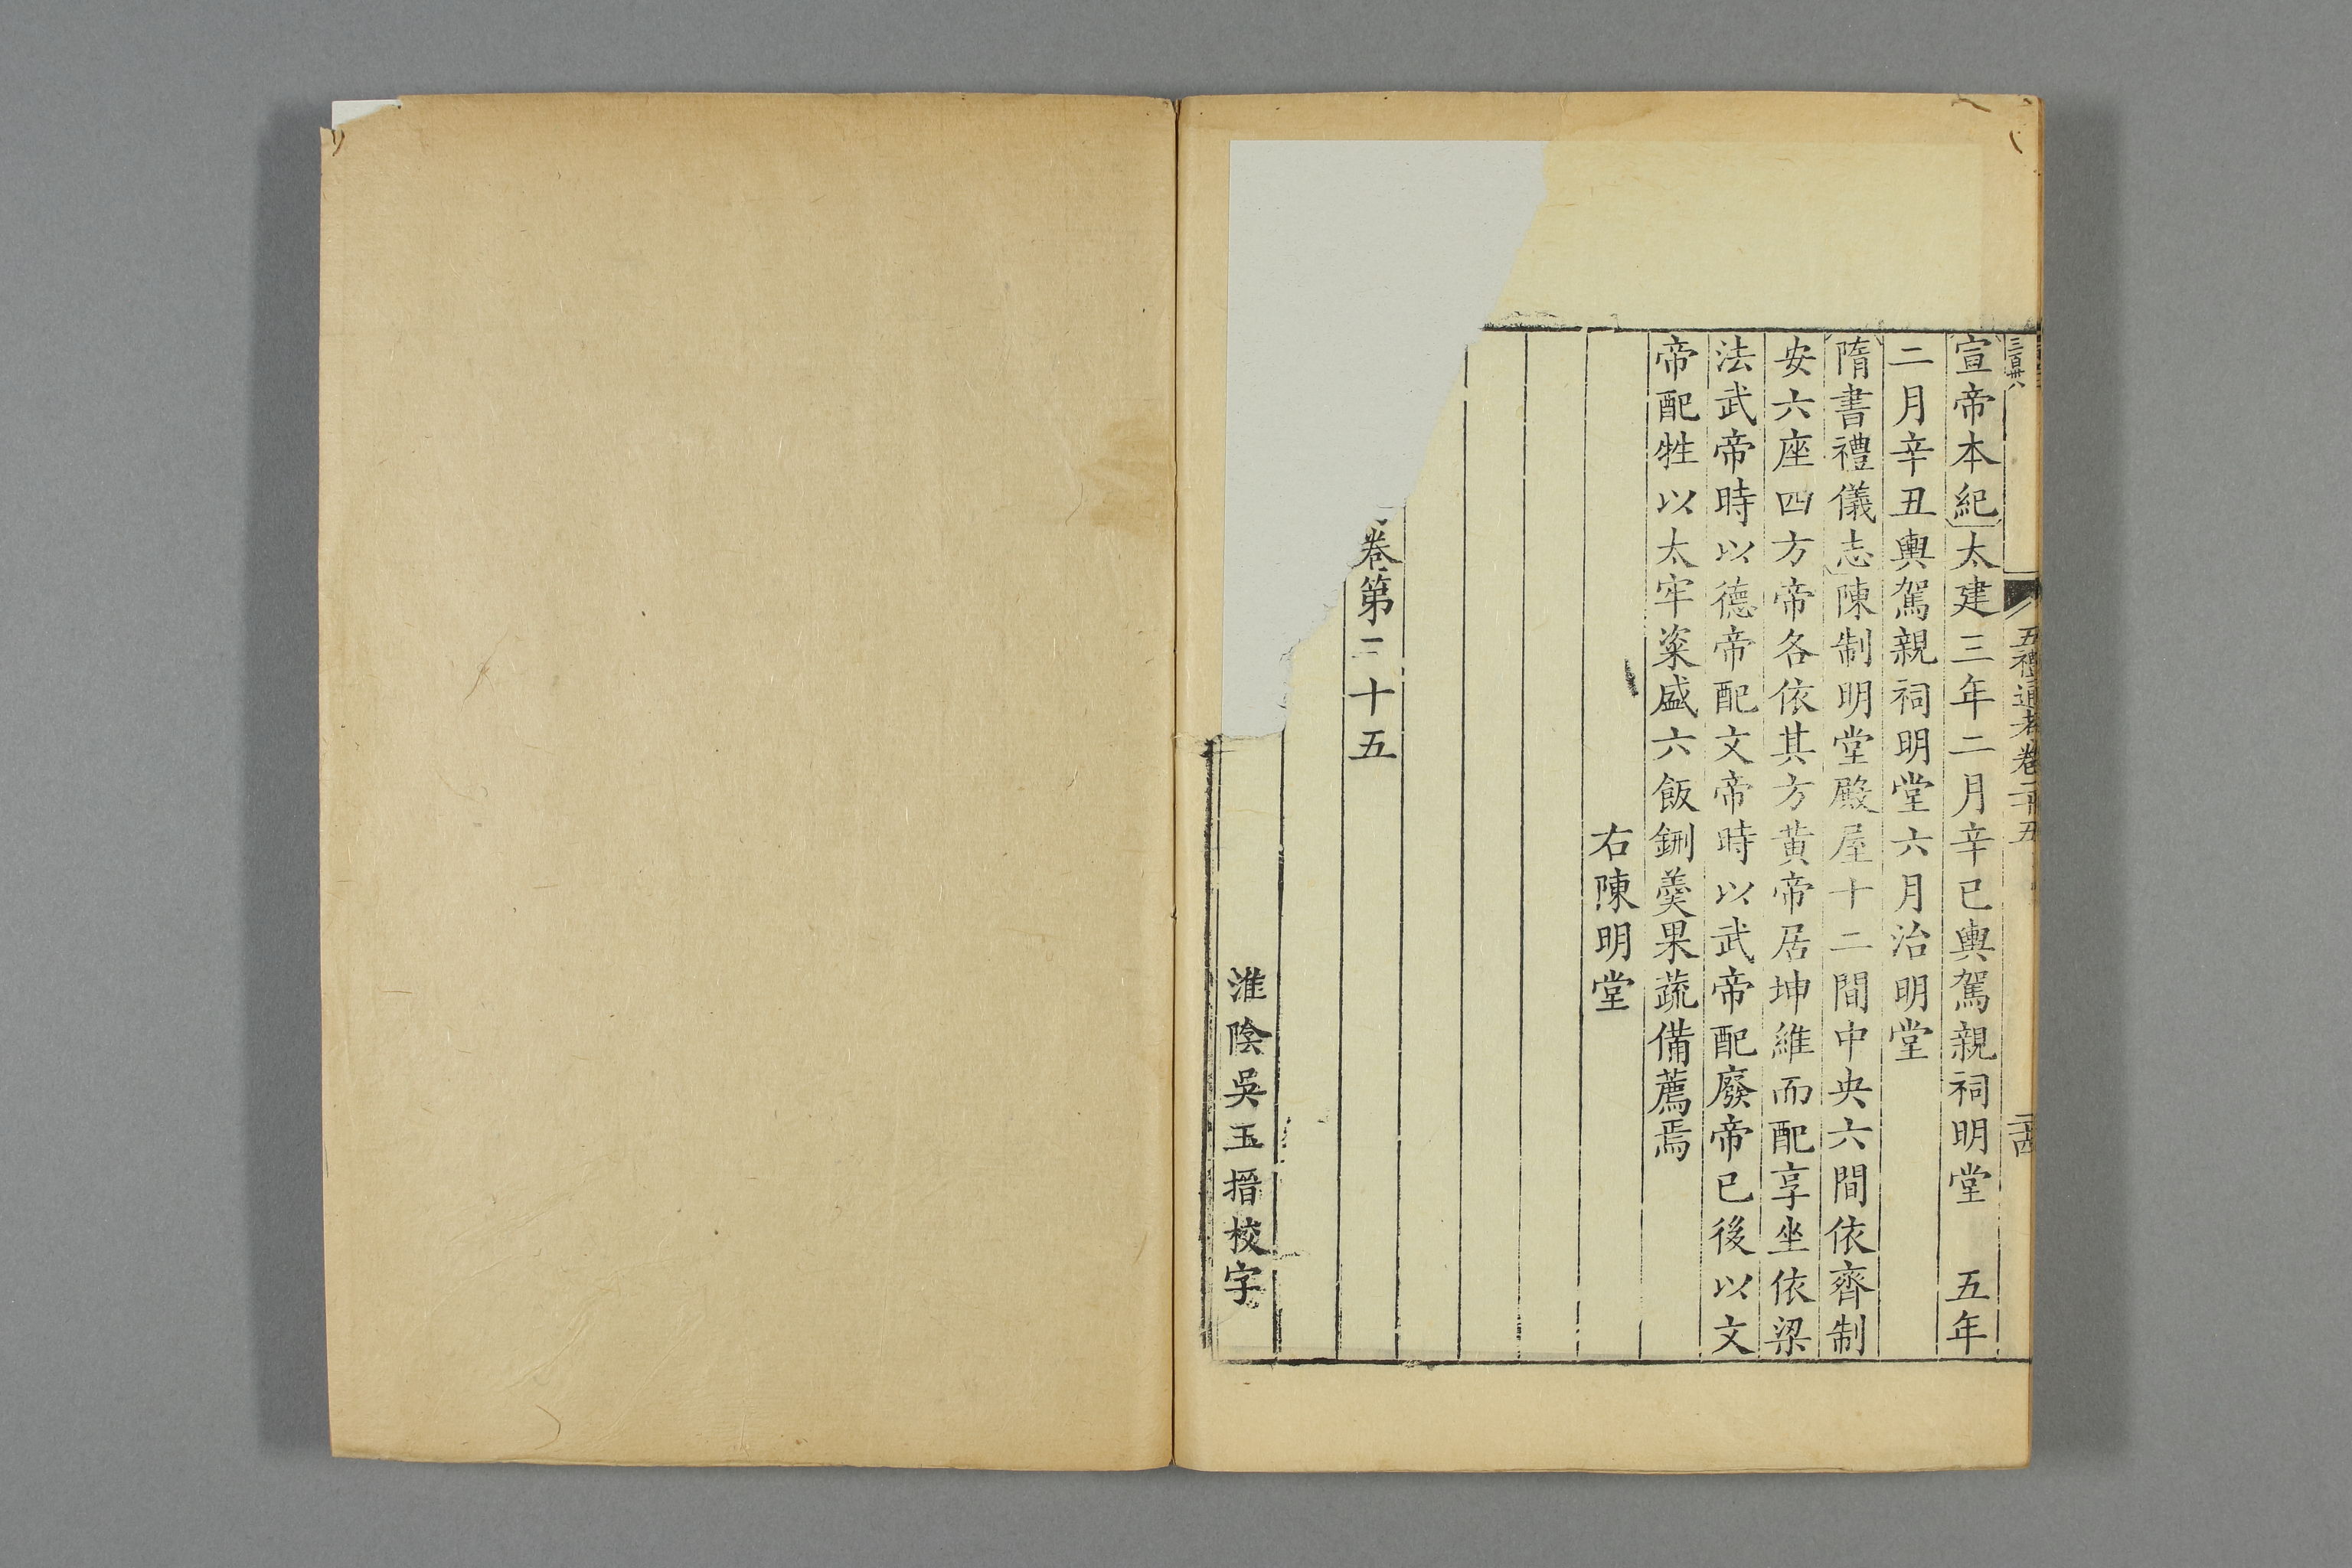 三百卅八
五禮通考卷二十五
二十四
宣帝本紀太建三年二月辛巳輿駕親祠明堂　五年
二月辛丑輿駕親祠明堂六月治明堂
隋書禮儀志陳制明堂殿屋十二間中央六間依齊制
安六座四方帝各依其方黃帝居坤維而配享坐依梁
法武帝時以德帝配文帝時以武帝配廢帝已後以文
帝配牲以太牢粢盛六飯鉶羹果蔬備薦焉
右陳明堂
卷第二十五
淮陰吳玉搢校字